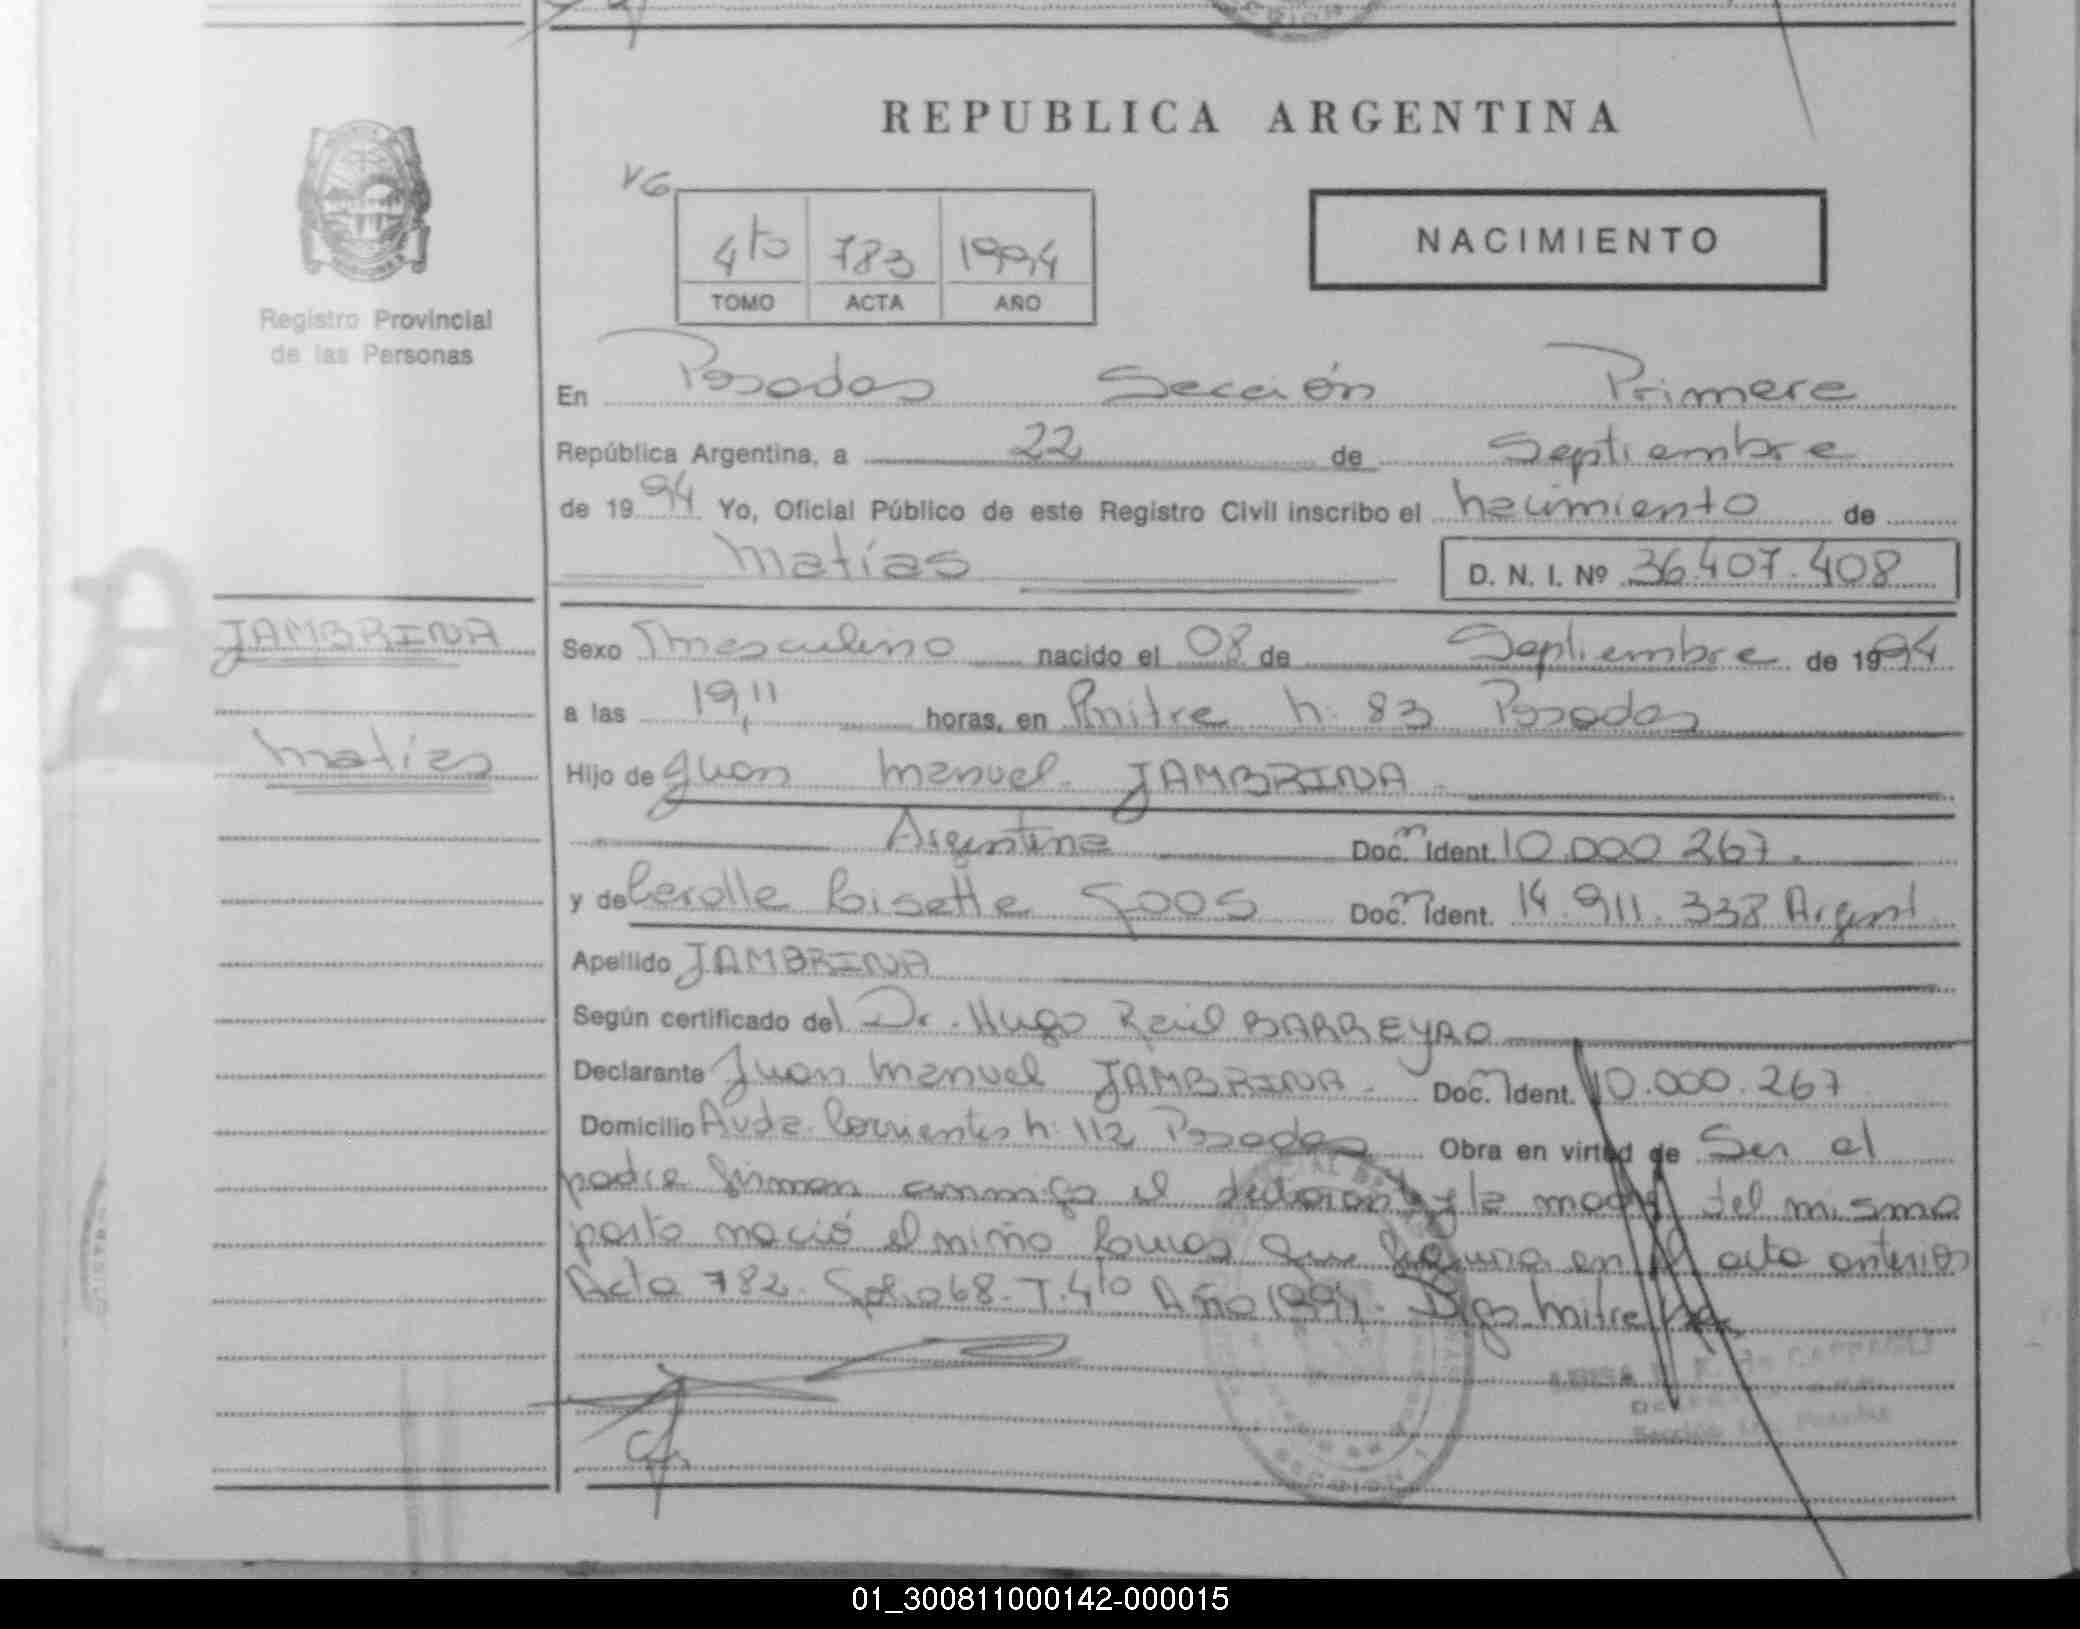 REPUBLICA ARGENTINA
VG
4to 783 1994
TOMO ACTA AÑO
NACIMIENTO
Registro Provincial
de las Personas
En Posadas Sección Primera
República Argentina, a 22 de Septiembre
de 1994 Yo, Oficial Público de este Registro Civil inscribo el nacimiento de
Matías D. N. I. Nº 36.407.408
JAMBRINA
Matías
Sexo Masculino nacido el 08 de Septiembre de 1994
a las 19,11 horas, en Mitre n. 83 Posadas
Hijo de Juan Manuel JAMBRINA
Argentina Doc. Ident. 10.000.267.
y de Carolle Lisette GOOS Doc. Ident. 14.911.338 Argent
Apellido JAMBRINA
Según certificado del Dr. Hugo Raúl BARREYRO
Declarante Juan Manuel JAMBRINA. Doc. Ident. 10.000.267
Domicilio Avda. Corrientes n. 112 Posadas Obra en virtud de Ser el
padre firman conmigo el declarante y la madre del mismo
parto nació el niño que figura en el acta anterior
Acta 782. Folio 68. T. 4to Año 1994. Digo Mitre
SECCION 1
Sección 1ra. Posadas
01_300811000142-000015